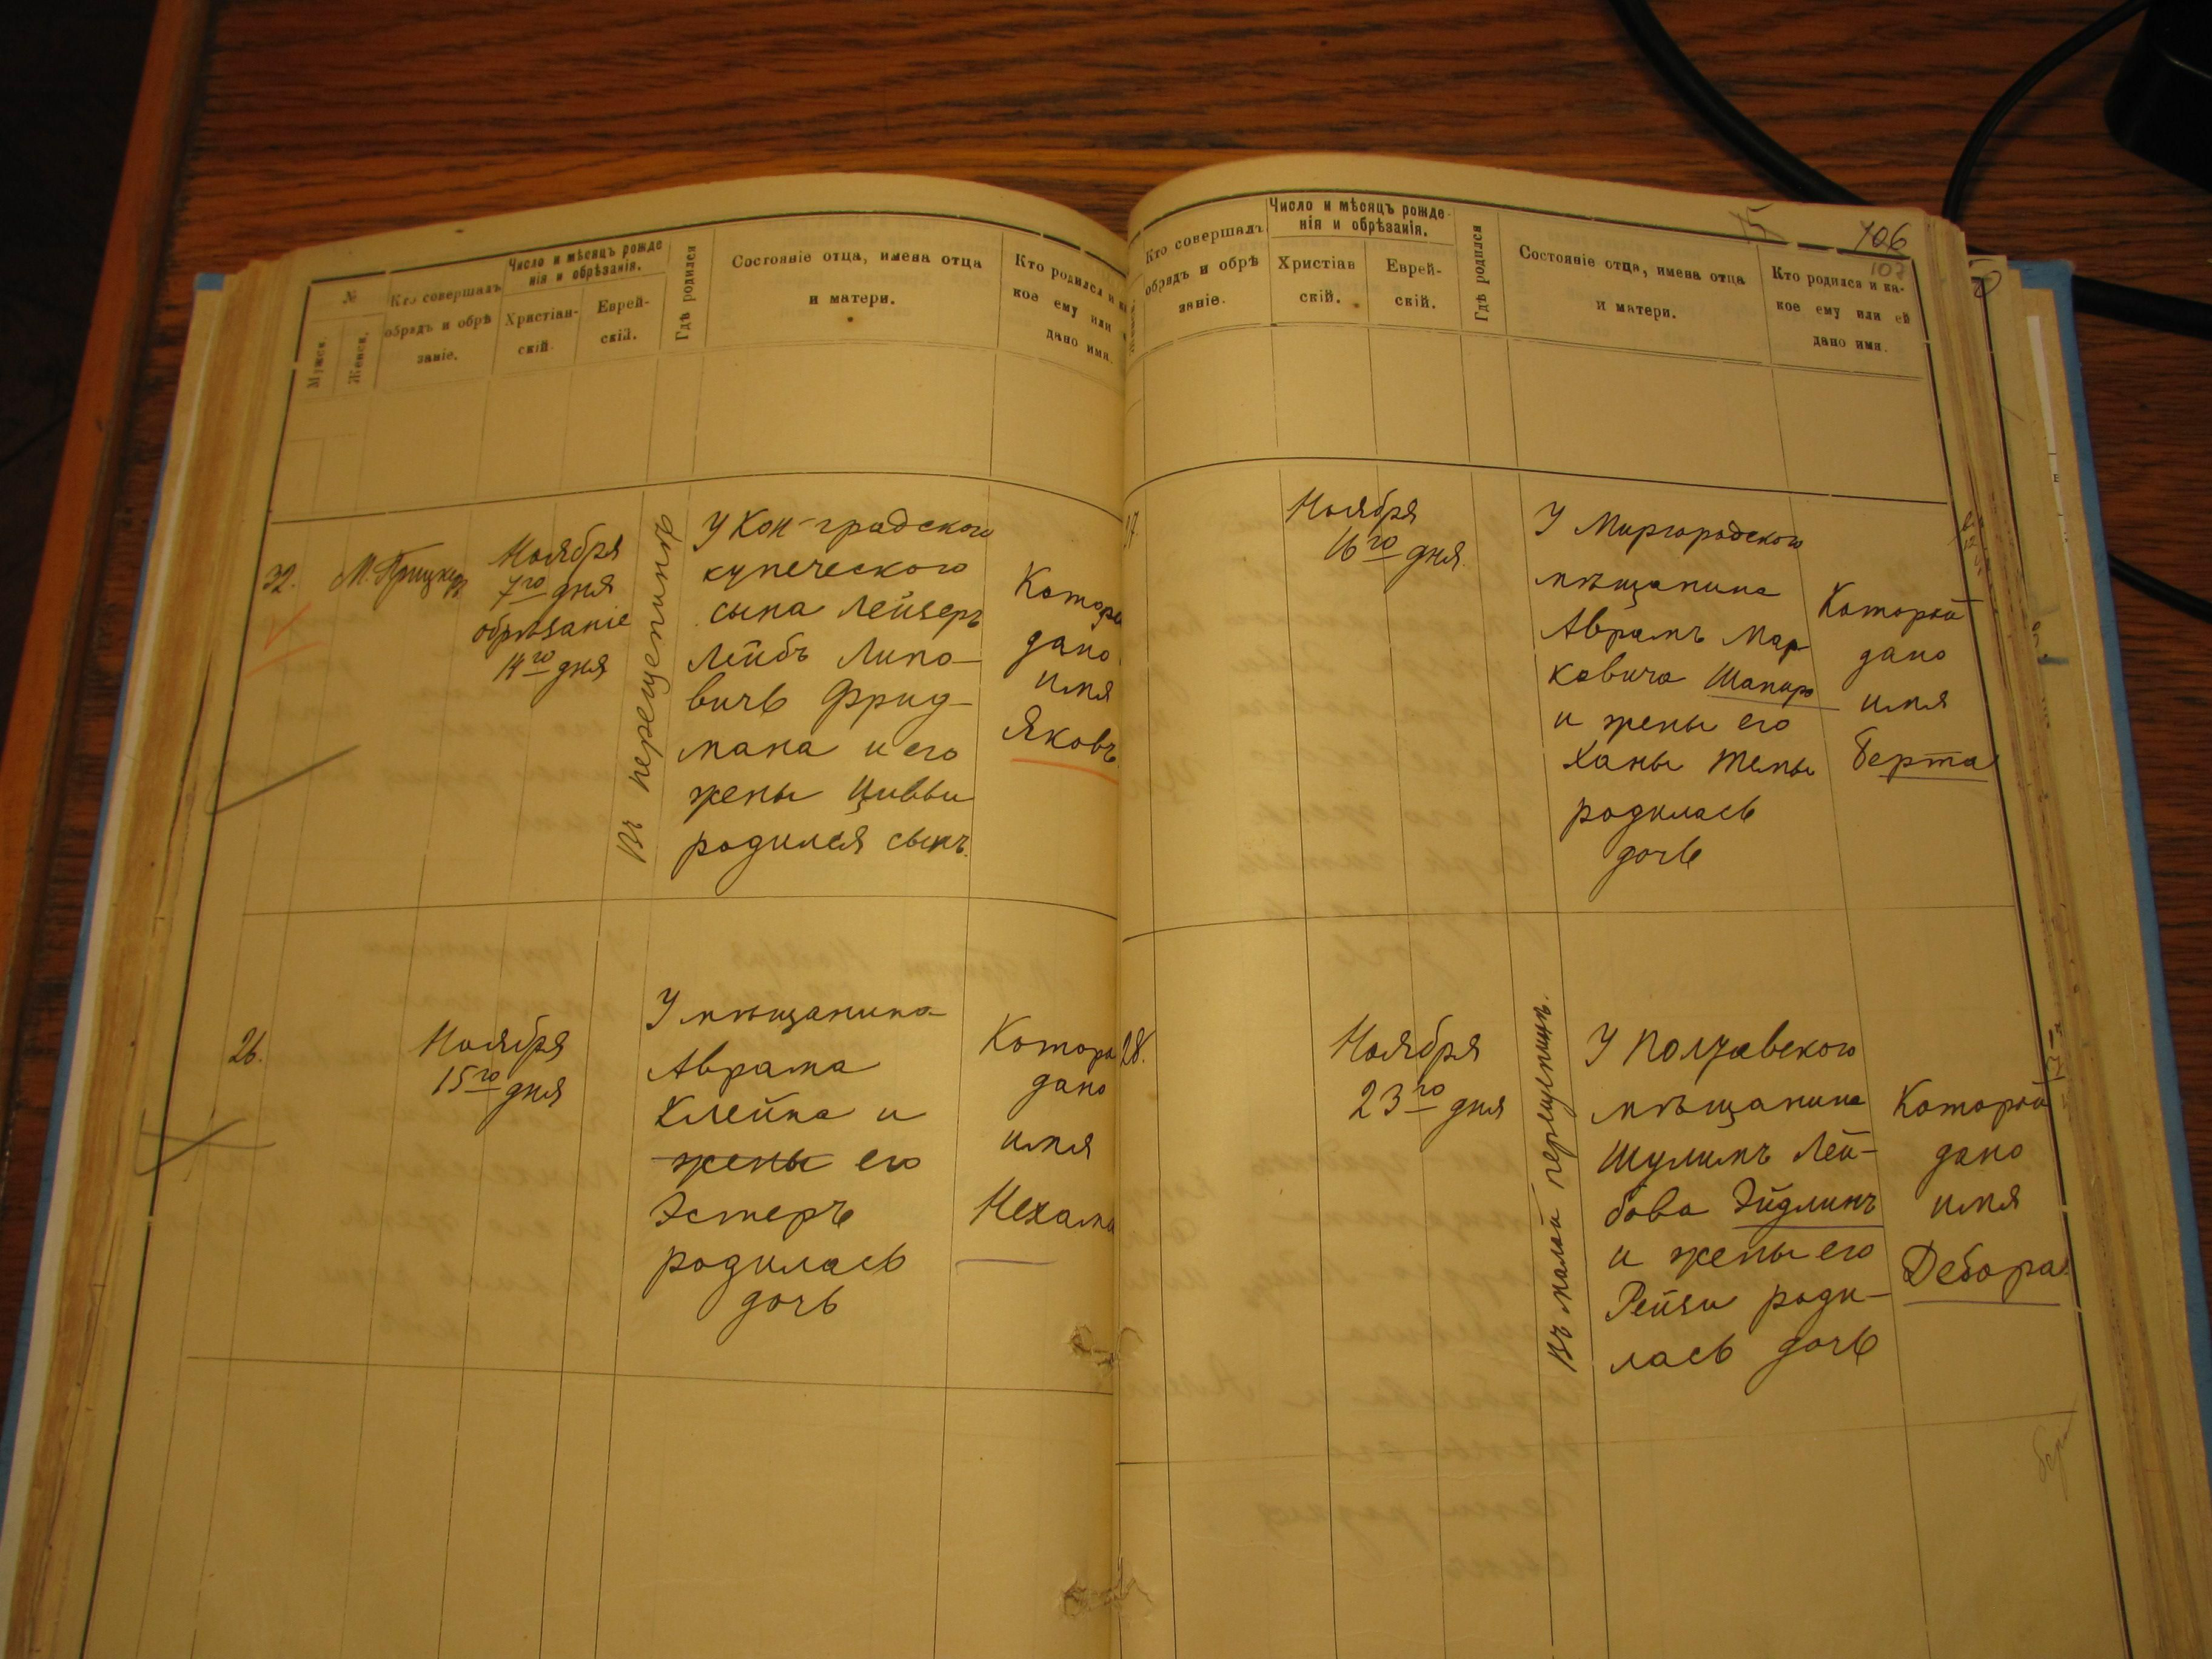 №
Мужск.
Женск.
Кто совершалъ
обрядъ и обрѣ
заніе.
Число и мѣсяцъ рожде
нія и обрѣзанія.
Христіан-
скій.
Еврей-
скій.
Гдѣ родился
Состояніе отца, имена отца
и матери.
Кто родился и
кое ему или
дано имя.
32.
Ноября
7го дня
обрѣзаніе
14го дня
Въ
У Кон-градского
купеческого
сына Лейзеръ
Лейбъ Липо-
вичъ Фрид-
мана и его
жены Цивьи
родился сынъ.
дано
имя
Яковъ
26.
Ноября
15го дня
У мѣщанина
Аврама
Клейна и
жены его
Эстеръ
родилась
дочь
дано
имя
Нехама
Кто совершалъ
обрядъ и обрѣ
заніе.
Число и мѣсяцъ рожде-
нія и обрѣзанія.
Христіан
скій.
Еврей-
скій.
Гдѣ родился
Состояніе отца, имена отца
и матери.
Кто родился и ка-
кое ему или ей
дано имя.
15
106
Ноября
16го дня
У Миргородского
мѣщанина
Аврамъ Мар-
ковича Шапиро
и жены его
Ханы Темы
родилась
дочь
Которой
дано
имя
Берта
28.
Ноября
23го дня
Въ малой перещепинѣ.
У Полтавского
мѣщанина
Шулимъ Лей-
бова Эйдлинъ
и жены его
Рейзи роди-
лась дочь
Которой
дано
имя
Дебора